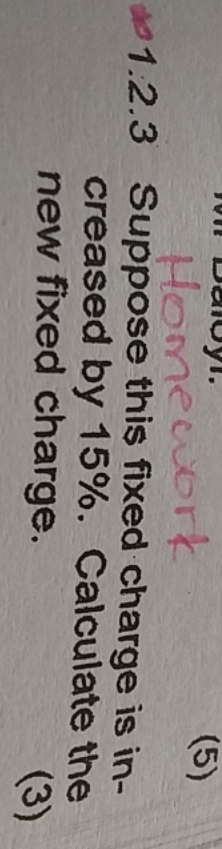 (5)
Homework
1.2.3 Suppose this fixed charge is in-
creased by 15%. Calculate the
new fixed charge.
(3)